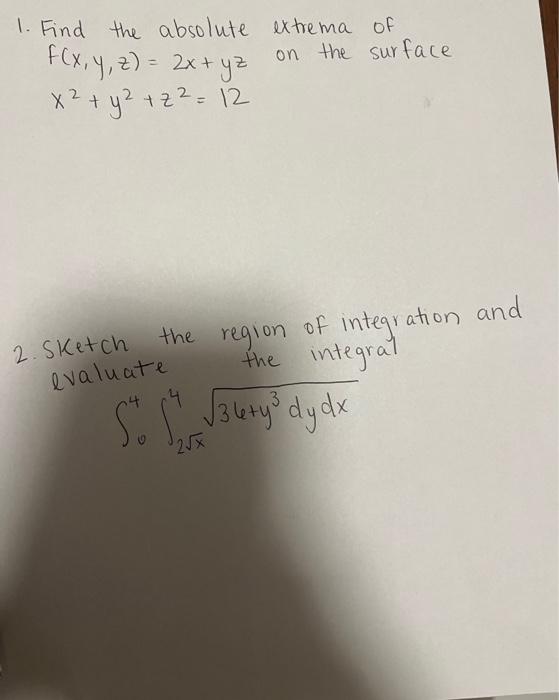 1. Find the absolute extrema of
f(x,y,z) = 2x + yz on the surface
x² + y² + z² = 12
2. Sketch the region of integration and
evaluate the integral
∫₀⁴ ∫_{2√x}^4 √(36+y³) dy dx